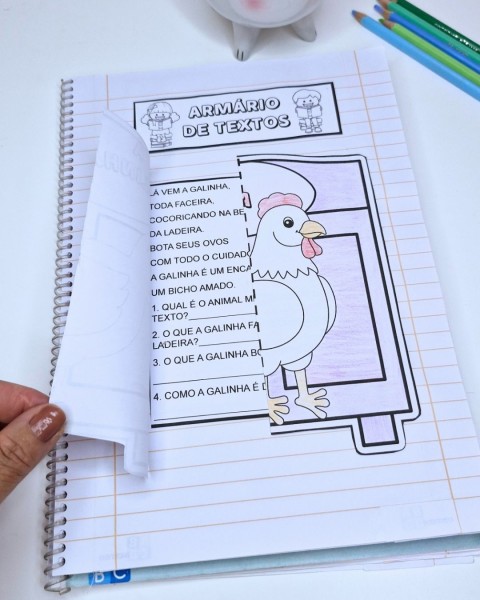 ARMÁRIO
DE TEXTOS
LÁ VEM A GALINHA,
TODA FACEIRA,
COCORICANDO NA BE
DA LADEIRA.
BOTA SEUS OVOS
COM TODO O CUIDAD
A GALINHA É UM ENCA
UM BICHO AMADO.
1. QUAL É O ANIMAL
TEXTO?
2. O QUE A GALINHA FA
LADEIRA?
3. O QUE A GALINHA BO
4. COMO A GALINHA É
B C